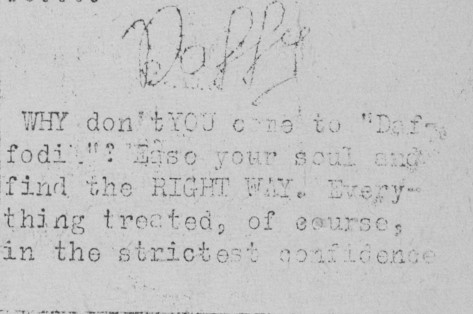 Daffy
WHY don't YOU come to "Daf-
fodil"? Ease your soul and
find the RIGHT WAY. Every-
thing treated, of course,
in the strictest confidence